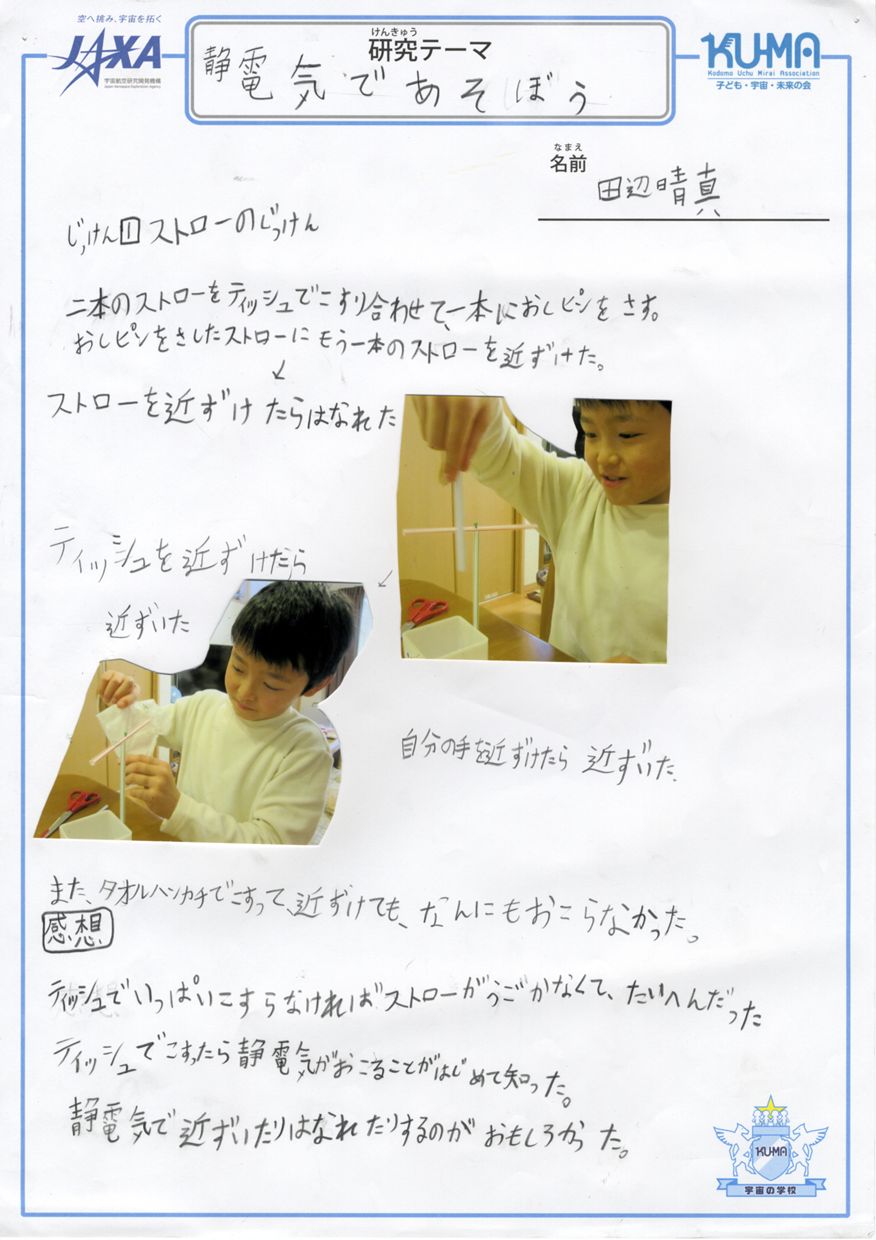 空へ挑み、宇宙を拓く
JAXA
宇宙航空研究開発機構
Japan Aerospace Exploration Agency
けんきゅう
研究テーマ
静電気であそぼう
KU-MA
Kodomo Uchu Mirai Association
子ども・宇宙・未来の会
なまえ
名前
田辺晴真
じっけん1ストローのじっけん
二本のストローをティッシュでこすり合わせて、一本におしピンをさす。
おしピンをさしたストローにもう一本のストローを近ずけた。
↓
ストローを近ずけたらはなれた
ティッシュを近ずけたら
近ずいた
自分の手を近ずけたら近ずいた、
また、タオルハンカチでこすって、近ずけても、なんにもおこらなかった。
感想
ティッシュでいっぱいこすらなければストローがうごかなくて、たいへんだった
ティッシュでこすったら静電気がおこることがはじめて知った。
静電気で近ずいたりはなれたりするのがおもしろかった。
KU-MA
宇宙の学校